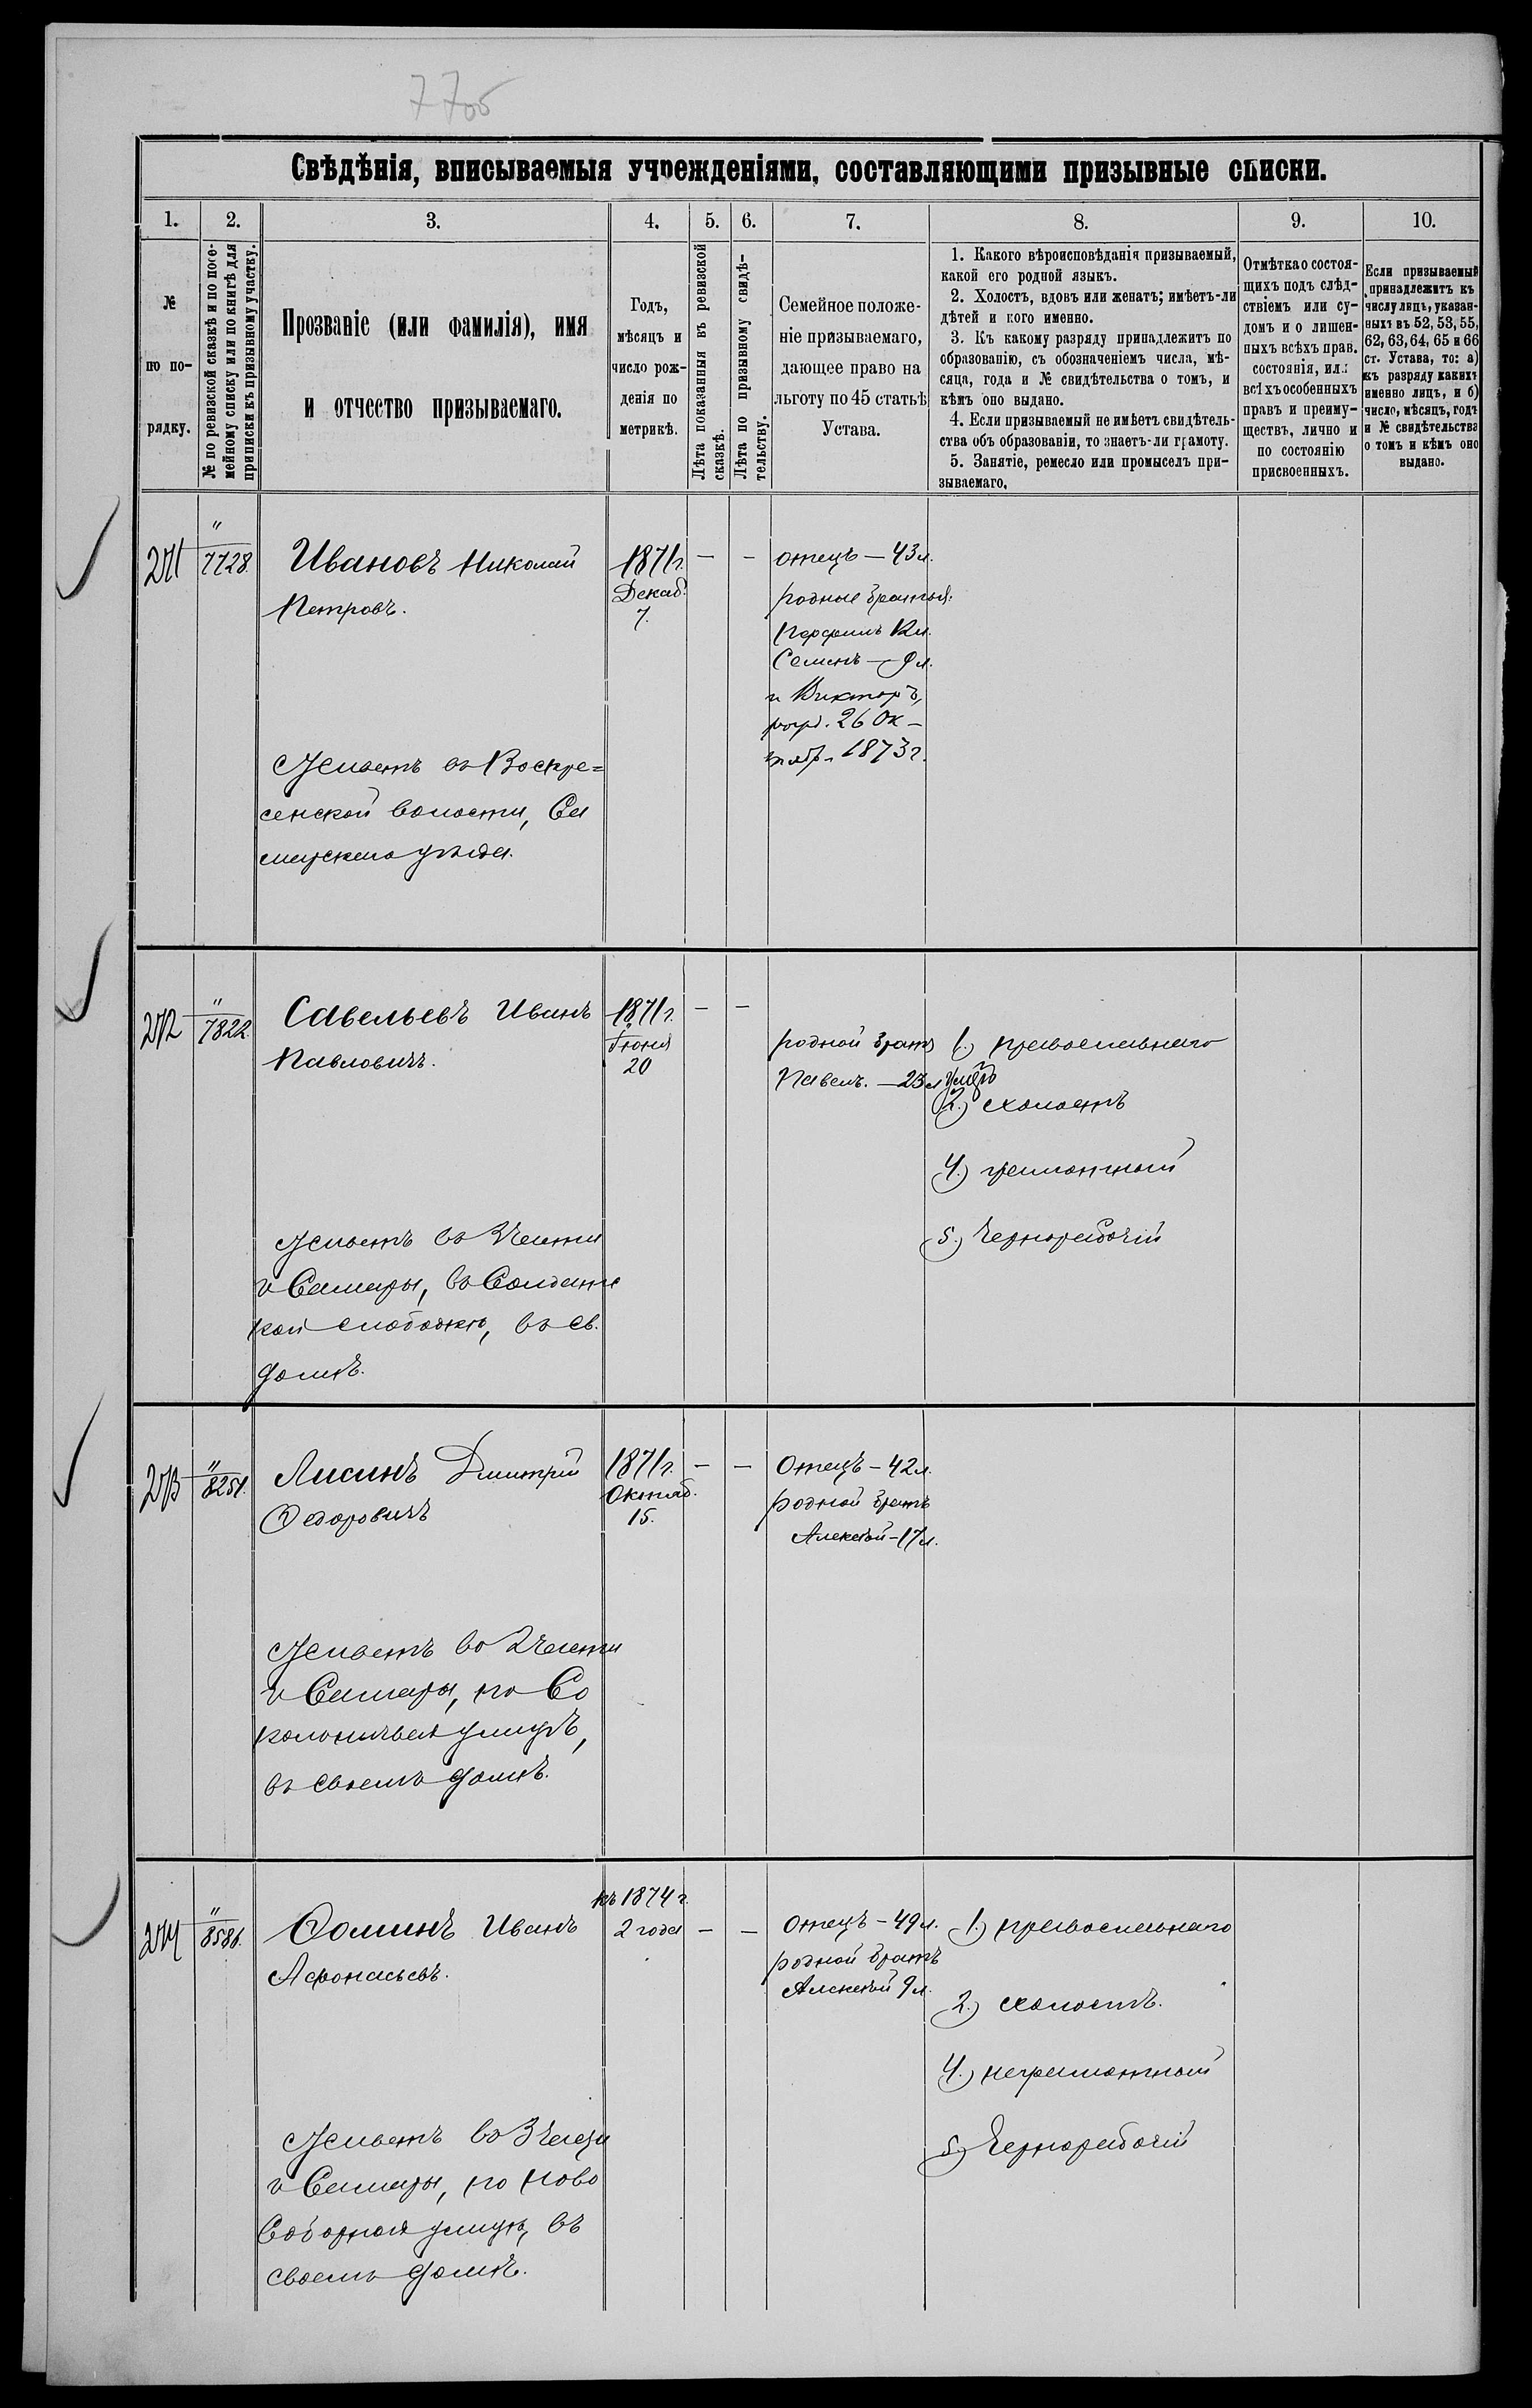 770б
Свѣдѣнія, вписываемыя учрежденіями, составляющими призывные списки.
1. 2. 3. 4. 5. 6. 7. 8. 9. 10.
№
по по-
рядку.
№ по ревизской сказкѣ и по посе-
мейному списку или по книгѣ для
приписки къ призывному участку.
Прозваніе (или фамилія), имя
и отчество призываемаго.
Годъ,
мѣсяцъ и
число рож-
денія по
метрикѣ.
Лѣта показанныя въ ревизской
сказкѣ.
Лѣта по призывному свидѣ-
тельству.
Семейное положе-
ніе призываемаго,
дающее право на
льготу по 45 статьѣ
Устава.
1. Какого вѣроисповѣданія призываемый,
какой его родной языкъ.
2. Холостъ, вдовъ или женатъ; имѣетъ-ли
дѣтей и кого именно.
3. Къ какому разряду принадлежитъ по
образованію, съ обозначеніемъ числа, мѣ-
сяца, года и № свидѣтельства о томъ, и
кѣмъ оно выдано.
4. Если призываемый не имѣетъ свидѣтель-
ства объ образованіи, то знаетъ-ли грамоту.
5. Занятіе, ремесло или промыселъ при-
зываемаго.
Отмѣтка о состоя-
щихъ подъ слѣд-
ствіемъ или су-
домъ и о лишен-
ныхъ всѣхъ прав.
состоянія, или
всѣхъ особенныхъ
правъ и преиму-
ществъ, лично и
по состоянію
присвоенныхъ.
Если призываемый
принадлежитъ къ
числу лицъ, указан-
ныхъ въ 52, 53, 55,
62, 63, 64, 65 и 66
ст. Устава, то: а)
къ разряду какихъ
именно лицъ, и б)
число, мѣсяцъ, годъ
и № свидѣтельства
о томъ и кѣмъ оно
выдано.
271
"
7728.
Ивановъ Николай
Петровъ.
Живетъ въ Воскре=
сенской волости, Са
марскаго уѣзда.
1871г.
Декаб.
7.
—
—
отецъ — 43 л.
родные братья:
Парфенъ 12 л.
Семенъ — 9 л.
и Викторъ,
рожд. 26 Ок-
тяб. 1873 г.
272
"
7822.
Савельевъ Иванъ
Павловичъ.
Живетъ въ 3 части
г Самары, въ Солдатс
кой слободкѣ, въ св.
домѣ.
1871г.
Іюня
20
—
—
родной братъ
Павелъ. — 23 л
1.) православнаго
2.) холостъ
4.) грамотный
5.) Чернорабочій
273
"
8251.
Лисинъ Дмитрій
Федоровичъ
Живетъ во 2 части
г Самары, по Со
колоничьей улицѣ,
въ своемъ домѣ.
1871г.
Октяб.
15.
—
—
Отецъ — 42 л.
родной братъ
Алексѣй — 17 л.
274
"
8586.
Фоминъ Иванъ
Афонасьевъ.
Живетъ въ 3 части
г Самары, по Ново
Соборной улицѣ, въ
своемъ домѣ.
къ 1874 г.
2 года
—
—
Отецъ — 49 л.
родной братъ
Алексѣй 9 л.
1.) православнаго
2.) холостъ.
4.) неграмотный
5.) Чернорабочій